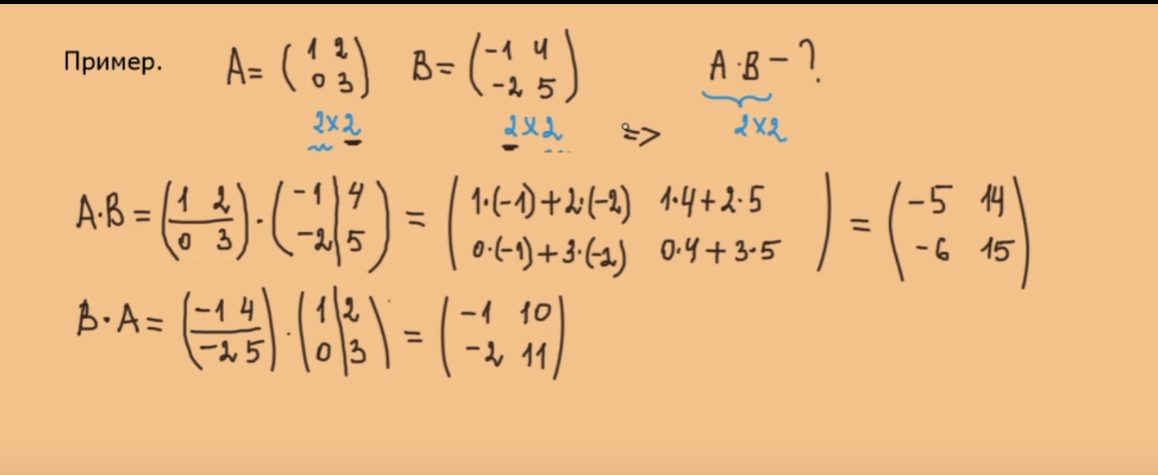 Пример. A = (1 2 0 3) B = (-1 4 -2 5) A·B - ?
2x2 2x2 => 2x2
A·B = (1 2 0 3) · (-1 | 4 -2 | 5) = (1·(-1)+2·(-2) 1·4+2·5 0·(-1)+3·(-2) 0·4+3·5) = (-5 14 -6 15)
B·A = (-1 4 -2 5) · (1 | 2 0 | 3) = (-1 10 -2 11)